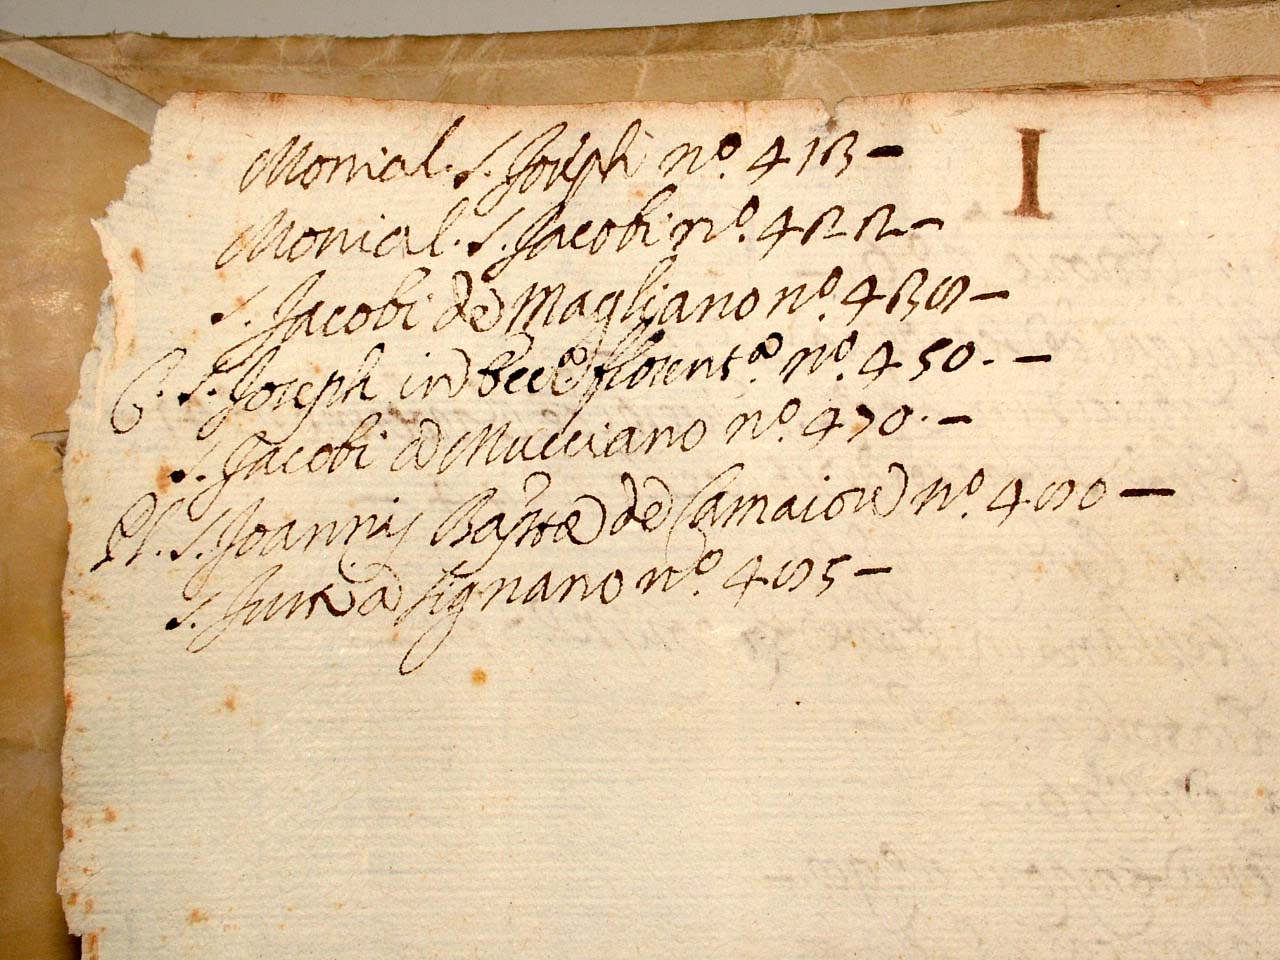 I
Monial. S. Joseph nº. 413 —
Monial. S. Jacobi nº. 422 —
S. Jacobi de Magliano nº. 438 —
C. S. Joseph in Florentª. nº. 450. —
S. Jacobi a Mucciano nº. 470. —
Pl. S. Joannis Baptæ de Camaiore nº. 480 —
S. a Signano nº. 485 —